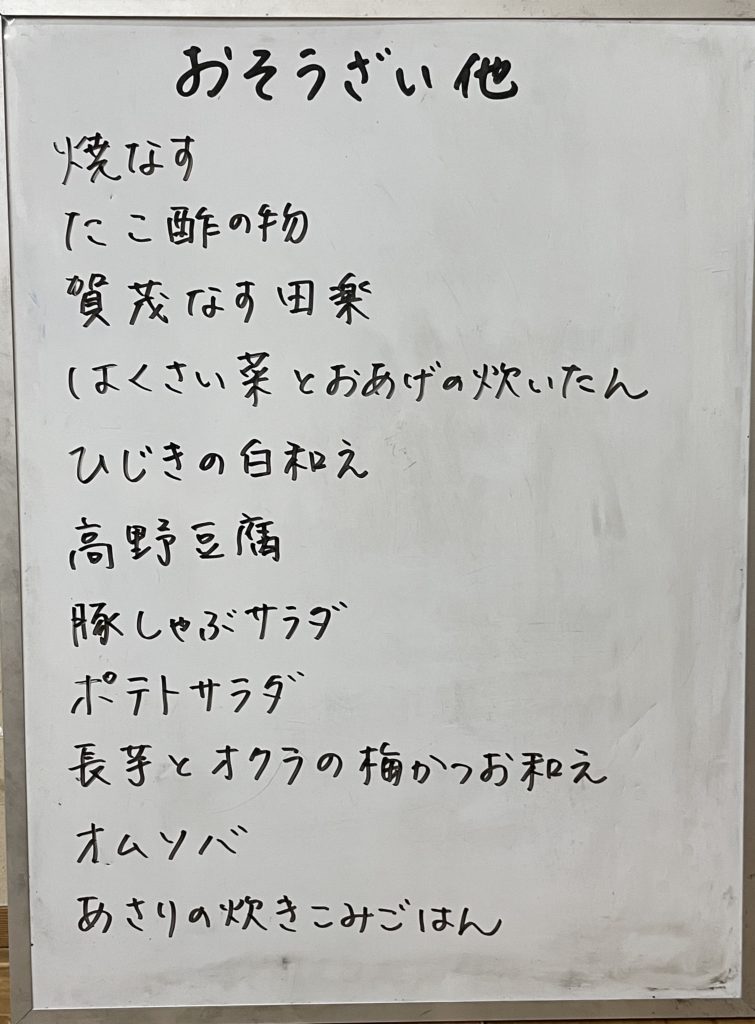 おそうざい他
焼なす
たこ酢の物
賀茂なす田楽
はくさい菜とおあげの炊いたん
ひじきの白和え
高野豆腐
豚しゃぶサラダ
ポテトサラダ
長芋とオクラの梅かつお和え
オムソバ
あさりの炊きこみごはん